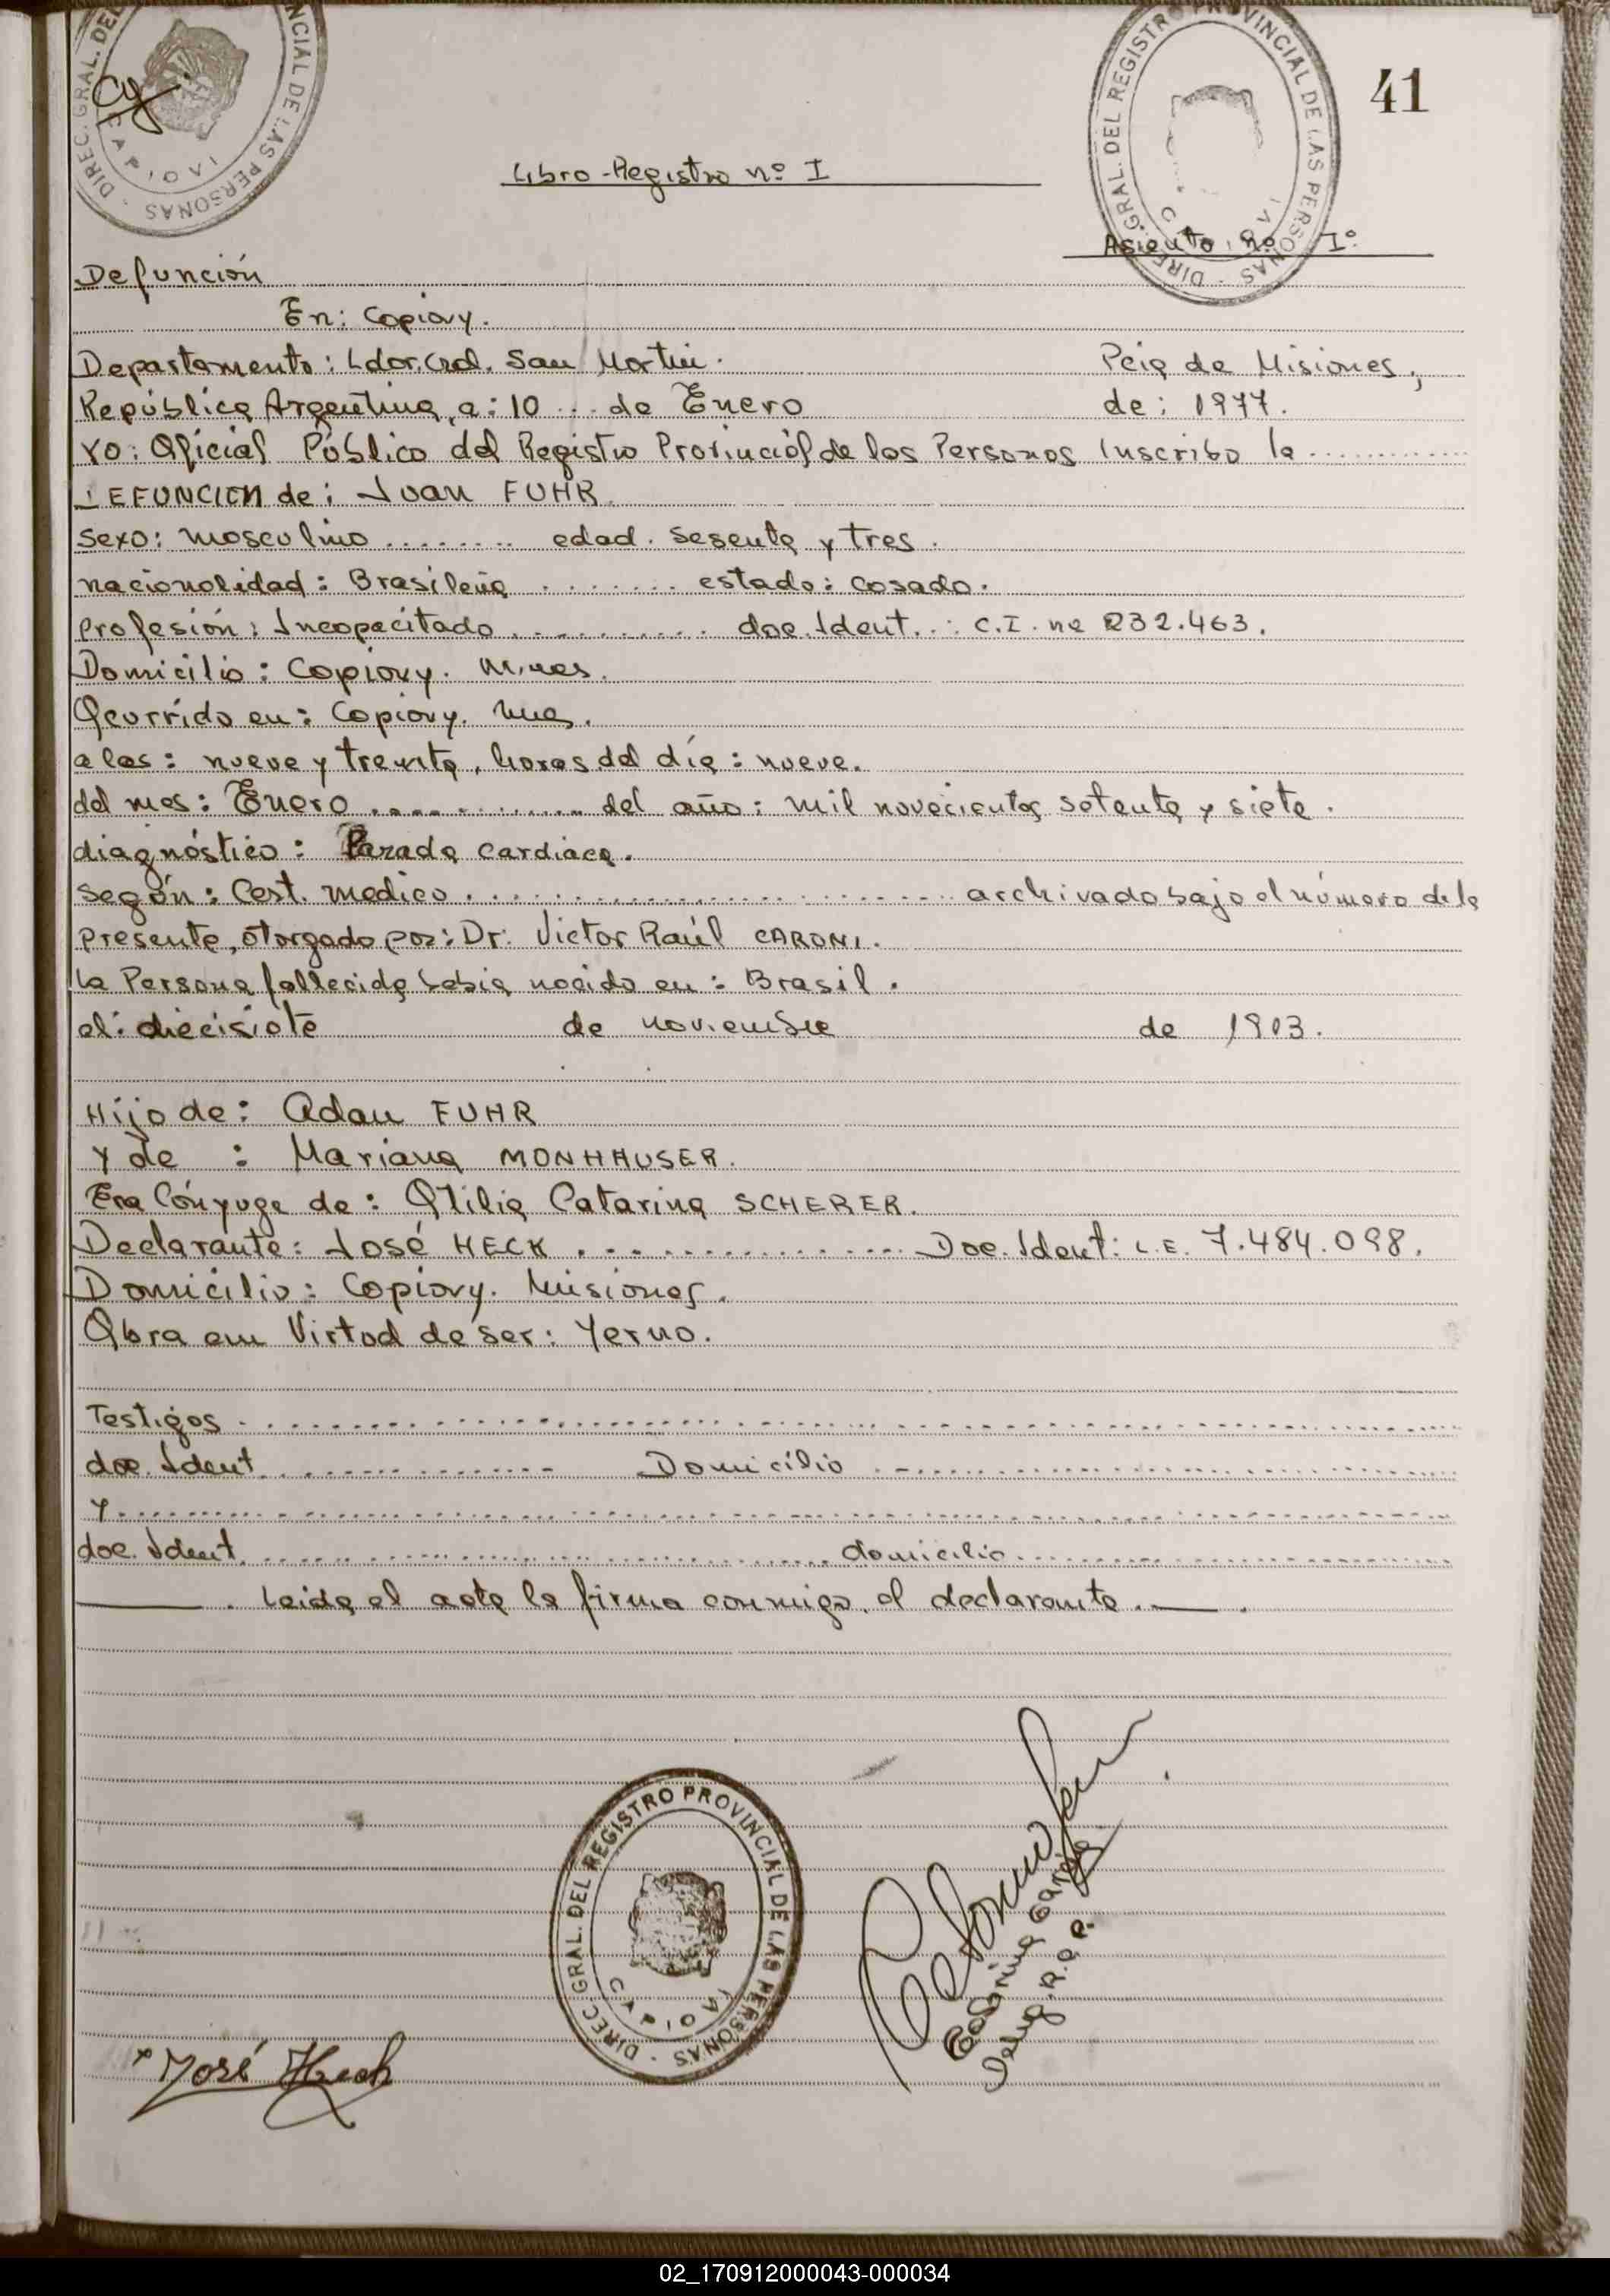 41
Libro-Registro nº I
Asiento nº Iº
Defunción
En: Capiovy.
Departamento: Ldor. Gral. San Martin. Pcia de Misiones,
República Argentina, a: 10 ... de Enero de: 1977.
Yo: Oficial Público del Registro Provincial de las Personas Inscribo la ............
DEFUNCION de: Juan FUHR.
Sexo: masculino ........ edad. sesenta y tres.
nacionalidad: Brasileña ........ estado: casado.
Profesión: Incapacitado .......... doc. Ident..: C.I. nº 232.463.
Domicilio: Capiovy. Mnes.
Ocurrido en: Capiovy. Mnes.
a las: nueve y treinta, horas del día: nueve.
del mes: Enero ............ del año: mil novecientos setenta y siete.
diagnóstico: Parada cardiaca.
Según: Cert. medico ........................ archivado bajo el número de la
presente, otorgado por: Dr. Victor Raúl CARONI.
La Persona fallecida había nacido en: Brasil.
el: diecisiete de noviembre de 1913.
Hijo de: Adan FUHR
y de : Mariana MONHAUSER.
Era Cónyuge de: Otilia Catarina SCHERER.
Declarante: José HECK ............... Doc. Ident: L.E. 7.484.098.
Domicilio: Capiovy. Misiones.
Obra em Virtud de ser: Yerno.
Testigos ........................
doc. Ident ............... Domicilio ...............
y ........................
doc. Ident ............... domicilio ...............
____. Leida el acta la firma conmigo, el declarante. ____.
DIREC. GRAL. DEL REGISTRO PROVINCIAL DE LAS PERSONAS
CAPIOVI
José Heck
02_170912000043-000034